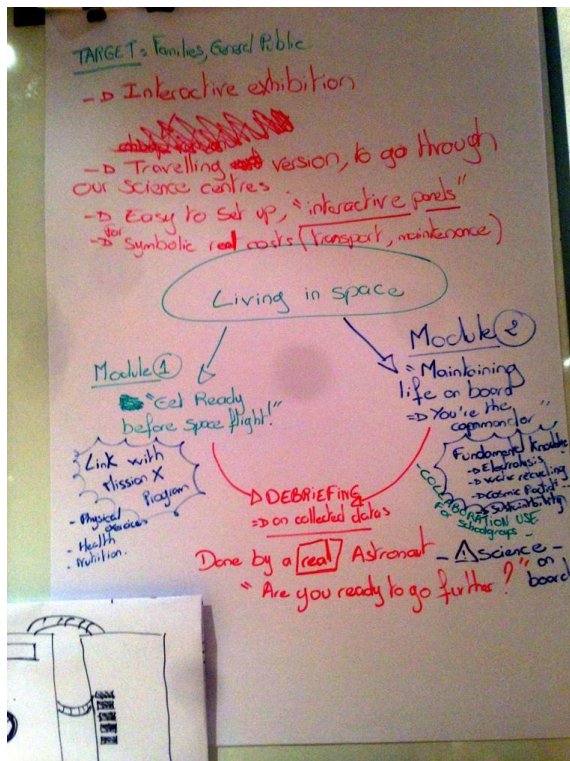 TARGET: Families, General Public
-> Interactive exhibition
-> Travelling version, to go through
our science centres
-> Easy to set up, "interactive panels"
-> for symbolic real costs (transport, maintenance)
Living in space
Module 1
"Get Ready
before space flight!"
Link with
Mission X
Program
- Physical exercices
- Health
- Nutrition.
Module 2
"Maintaining
life on board"
=> You're the
commander
Fundamental Knowledge
-> Electrolysis
-> Water recycling
-> Cosmic
-> Sustainability
- COLLABORATION USE
For schoolgroups -
DEBRIEFING
=> on collected datas
Done by a real Astronaut
- Science -
on
board
"Are you ready to go further?"